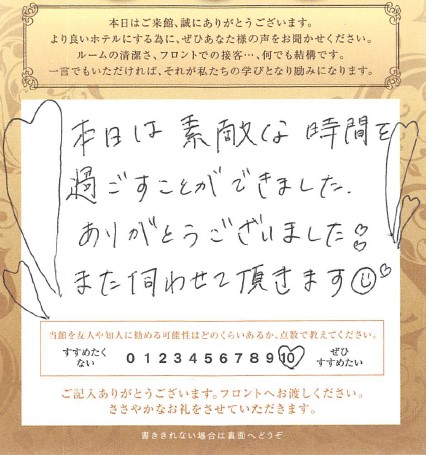 本日はご来館、誠にありがとうございます。
より良いホテルにする為に、ぜひあなた様の声をお聞かせください。
ルームの清潔さ、フロントでの接客…、何でも結構です。
一言でもいただければ、それが私たちの学びとなり励みになります。
本日は素敵な時間を
過ごすことができました.
ありがとうございました
また伺わせて頂きます
当館を友人や知人に勧める可能性はどのくらいあるか、点数で教えてください。
すすめたくない 0 1 2 3 4 5 6 7 8 9 10 ぜひすすめたい
ご記入ありがとうございます。フロントへお渡しください。
ささやかなお礼をさせていただきます。
書ききれない場合は裏面へどうぞ